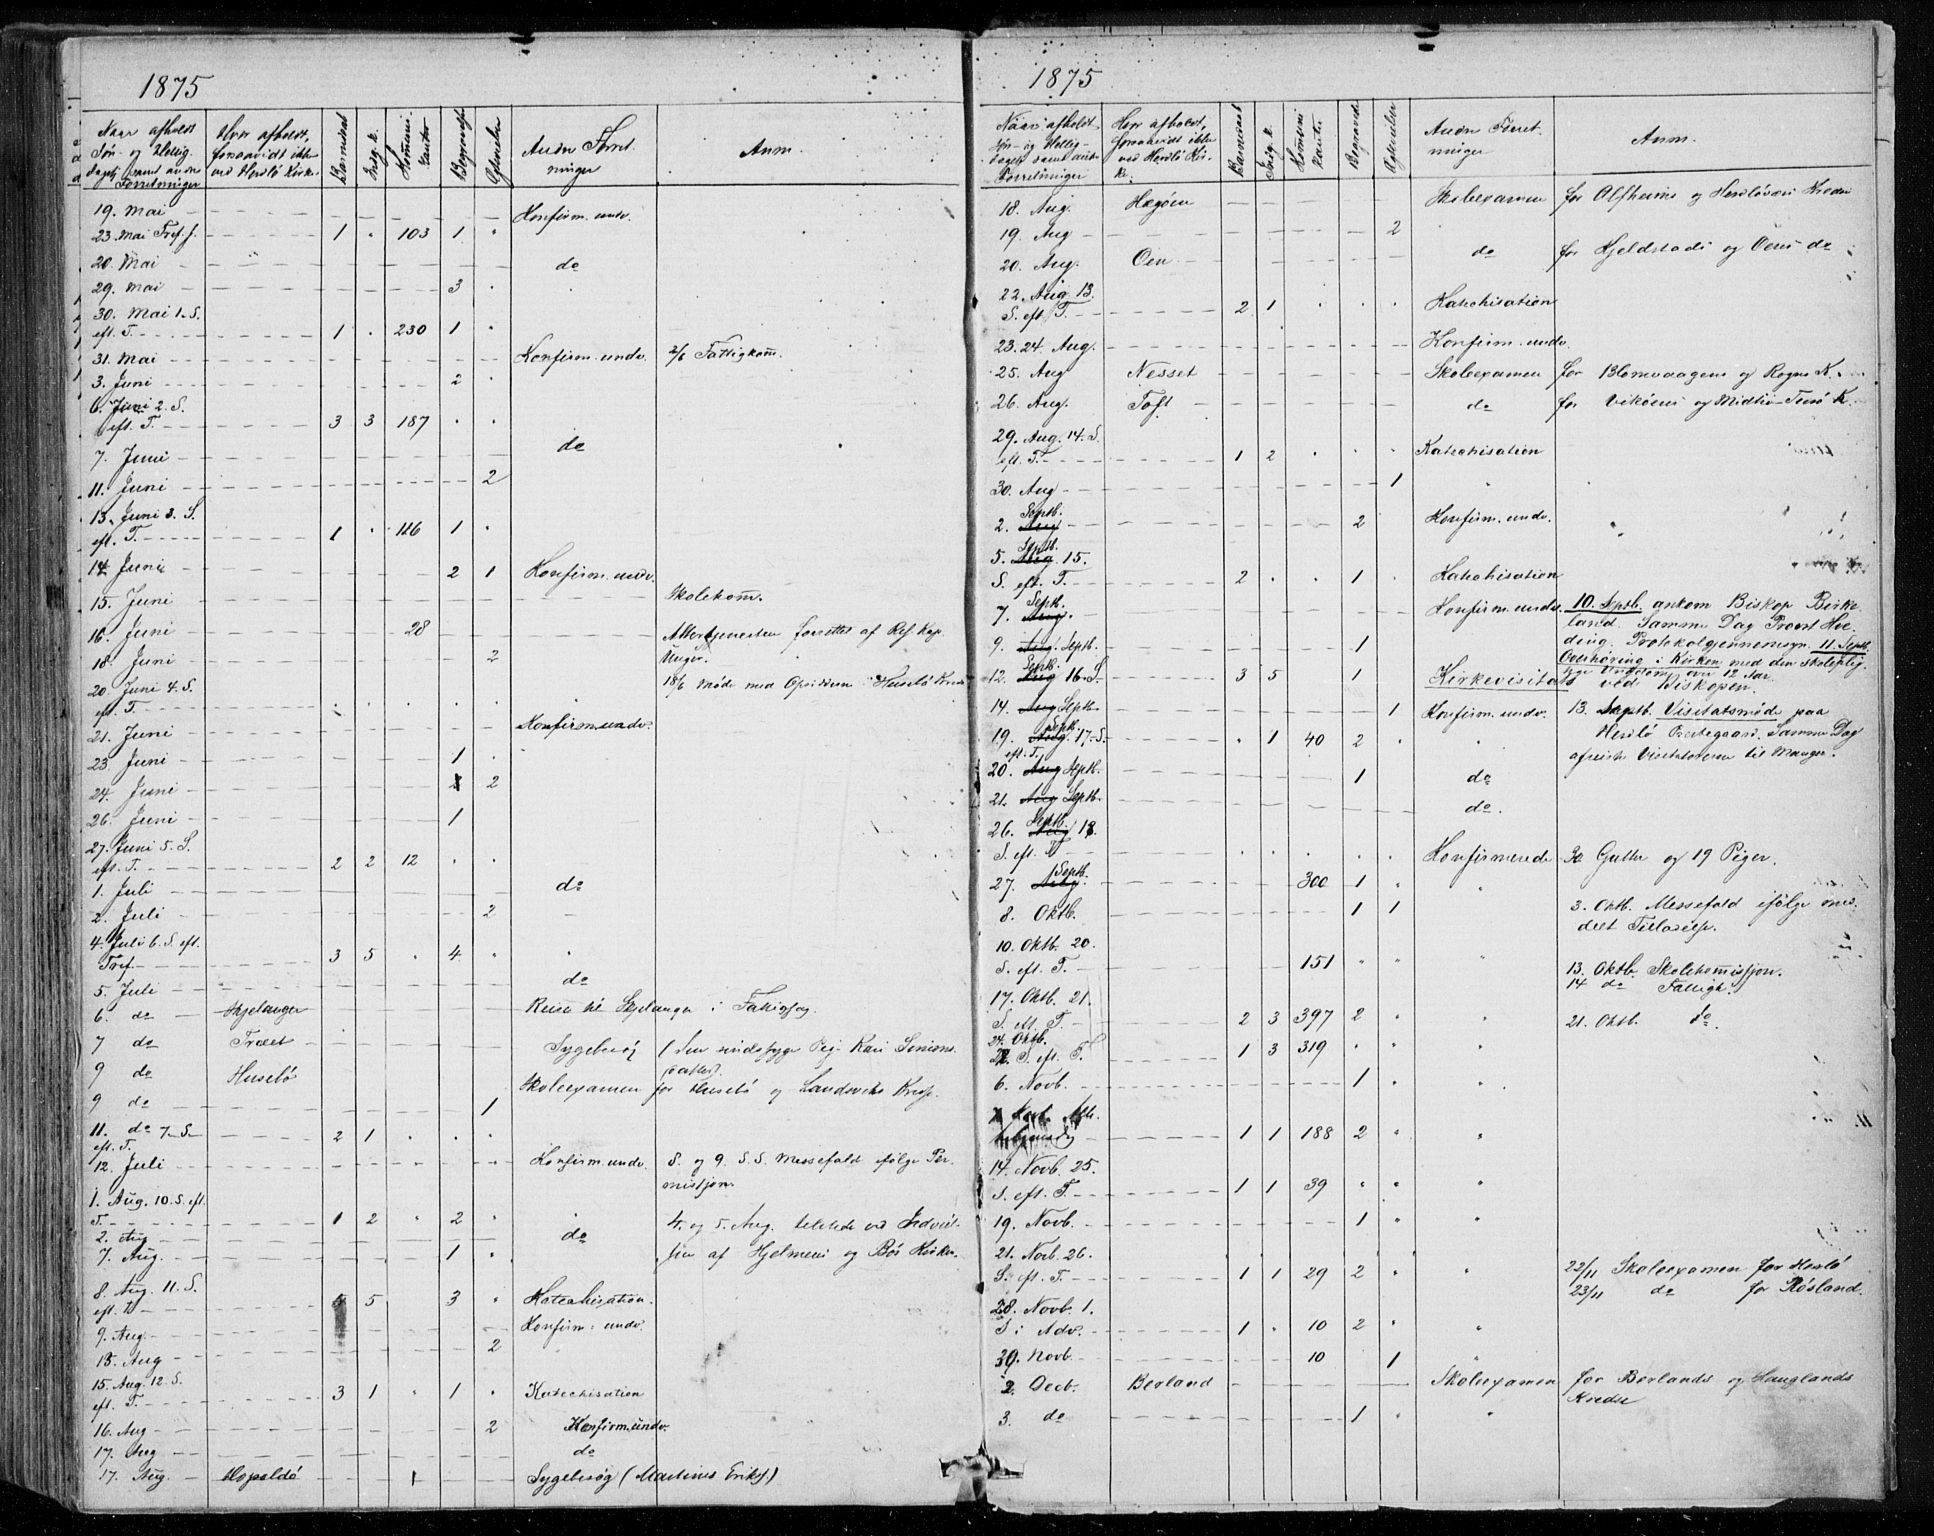 1875
Naar afholdt Søn- og Hellig-dagstj. samt andre Forretninger | Hvor afholdt, forsaavidt ikke ved Herdlø Kirke | Barnedaab | Ægt. | Kommunikanter | Begravelse | Ægtevielser | Andre Forretninger | Anm.
19. Mai Konfirm. undv.
23. Mai Tref. f. 1 " 103 1 "
20. Mai do
29. Mai 3 "
30. Mai 1. S.
eft. T. 1 " 230 1 "
31. Mai Konfirm. undv. 2/6 Fattigkom.
3. Juni 2 "
6. Juni 2. S.
eft. T. 3 3 187 " "
7. Juni do
11. Juni 2
13. Juni 3. S.
eft. T. 1 " 126 1 "
14. Juni 2 1 Konfirm. undv.
15. Juni Skolekom.
16. Juni 28 Altertjenesten forrettet af Ref. Kap.
Unger.
18. Juni 2
18/6 Møde med Opsidderne i Husebø Kreds
20. Juni 4. S.
eft. T. " " " " " "
21. Juni Konfirm. undv.
23. Juni 1 "
24. Juni 2
26. Juni 1
27. Juni 5. S.
eft. T. 2 2 12 " "
1. Juli do
2. Juli 2
4. Juli 6. S. eft.
Tref. 3 5 " 4 " "
5. Juli do
6. do Skjelanger Reise til Skjelanger i Fattigsag.
7 do Træet Sygebesøg (den sindssyge Pig. Kari Simons-
datter).
9 do Husebø Skoleexamen for Husebø og Landsviks Kreds.
9 do 1
11. do 7. S.
eft. T. 2 1 " " "
12. Juli Konfirm. undv. 8. og 9. S. S. Messefald ifølge Per-
misjon.
1. Aug. 10. S. eft.
T. 1 2 " 2 " " 4. og 5. Aug. deltede ved Indviel-
2. Aug do
7. Aug. 1 " sen af Hjelmens og Bøs Kirker.
8. Aug. 11. S.
eft. T. 4 5 3 " Katechisation.
9. Aug. Konfirm. undv.
13. Aug 2
15. Aug. 12. S.
eft. T. 3 1 " 1 " Katechisation
16. Aug 2 Konfirm. undv.
17. Aug do
17. Aug. Hopaldö 1 Sygebesøg (Martinus Eriks.)
1875
Naar afholdt Søn- og Hellig-dagstj. samt andre Forretninger | Hvor afholdt, forsaavidt ikke ved Herdlø Kirke | Barnedaab | Ægt. | Kommunikanter | Begravelse | Ægtevielser | Andre Forretninger | Anm.
18. Aug. Hægøen Skoleexamen for Alfheims og Herdlöværs Kredse
19. Aug 2 "
20. Aug. Oen do for Kjeldstads og Oens do
22. Aug. 13.
S. eft. T. 2 1 " " " Katechisation
23. 24. Aug. Konfirm. undv.
25. Aug Nesset Skoleexamen for Blomvaagens og Rogns K.
26. Aug. Toft do for Vikøens og Midtre-Turø K.
29. Aug. 14. S.
eft. T. 1 2 " " " Katechisation
30. Aug 1 "
2. Septb. 2 Konfirm. undv.
5. Septb. 15.
S. eft. T. 2 " " 1 " Katechisation
7. Septb. Konfirm. undv. 10. Septb. ankom Biskop Birke-
land. Samme Dag Provst Hve-
9. Septb. 1 ding. Protokolgjennemsyn. 11. Septb.
Overhøring i Kirken med den skolepligtige
12. Septb. 16. S. 3 5 1 Kirkevisitats Ungdom over 12 Aar
ved Biskopen.
14. Septb. 1 Konfirm. undv. 13. Septb. Visitatsmøde paa
19. Septb. 17. S.
eft. T. " 1 40 2 " " Herdlø Prestegaard. Samme Dag
afreiste Visitatoren til Manger.
20. Septb. 1 do
21. Septb. do.
26. Septb. 18.
S. eft. T. " " " " " Konfirmerede 30 Gutter og 19 Piger.
27. Septb. 300 1 " "
8. Oktb. 1 1 3. Oktb. Messefald ifølge med-
delt Tilladelse.
10. Oktb. 20.
S. eft. T. 151 " " " 13. Oktb. Skolekommissjon.
14 do Fattigk.
17. Oktb. 21.
S. eft. T. 2 3 397 2 " " 21. Oktb. do.
24. Oktb.
22 S. eft. T. 1 3 319 " "
6. Novb. 1 " "
7 Novb. Alle-
helgensdag 1 1 188 2 " "
14. Novb. 25.
S. eft. T. 1 1 39 " " "
19. Novb. 1 "
21. Novb. 26.
S. eft. T. 1 1 29 2 " " 22/11 Skoleexamen for Herdlø
23/11 do for Røsland.
28. Novb. 1.
S. i Adv. 1 " 10 2 " "
30. Novb 10 1 "
2. Decb. Berland Skoleexamen for Berlands og Hauglands
Kredse
3. do 1 " "